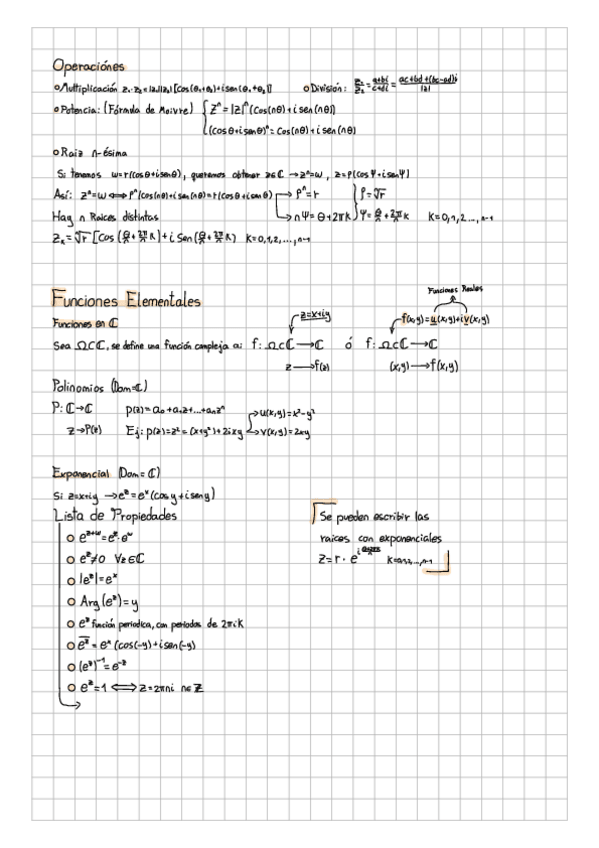 Operaciónes
Multiplicación z₁·z₂=|z₁||z₂|[cos(θ₁+θ₂)+isen(θ₁+θ₂)]
División: z₁/z₂ = a+bi/c+di = ac+bd+(bc-ad)i/|z|
Potencia: (Fórmula de Moivre) zⁿ=|z|ⁿ(cos(nθ)+isen(nθ))
(cosθ+isenθ)ⁿ=cos(nθ)+isen(nθ)
Raiz n-ésima
Si tenemos w=r(cosθ+isenθ), queremos obtener z∈ℂ → zⁿ=w, z=ρ(cosΨ+isenΨ)
Así: zⁿ=w ⟺ ρⁿ(cos(nθ)+isen(nθ)=r(cosθ+isenθ) → ρⁿ=r ρ=ⁿ√r
→ nΨ=θ+2πk Ψ=θ/n+2π/n k k=0,1,2...,n-1
Hay n Raices distintas
Zₖ=ⁿ√r [cos(θ/n+2π/n k)+isen(θ/n+2π/n k) k=0,1,2,...,n-1
Funciones Elementales
Funciones Reales
Funciones en ℂ
z=x+iy
f(x,y)=u(x,y)+iv(x,y)
Sea Ω⊂ℂ, se define una función compleja a: f:Ω⊂ℂ→ℂ ó f:Ω⊂ℂ→ℂ
z→f(z) (x,y)→f(x,y)
Polinomios (Dom=ℂ)
P:ℂ→ℂ p(z)=a₀+a₁z+...+aₙzⁿ u(x,y)=x²-y²
z→P(z) Ej: p(z)=z²=(x+y²)+2ixy v(x,y)=2xy
Exponencial (Dom=ℂ)
Si z=x+iy → eᶻ=eˣ(cosy+iseny)
Lista de Propiedades
eᶻ⁺ʷ=eᶻ·eʷ
eᶻ≠0 ∀z∈ℂ
|eᶻ|=eˣ
Arg(eᶻ)=y
eᶻ función periodica, con periodos de 2πik
e̅ᶻ=eˣ(cos(-y)+isen(-y)
(eᶻ)⁻¹=e⁻ᶻ
eᶻ=1 ⟺ z=2πni n∈ℤ
Se pueden escribir las
raices con exponenciales
z=r·e^(i (θ+2πk)/n) k=0,1,2,...,n-1